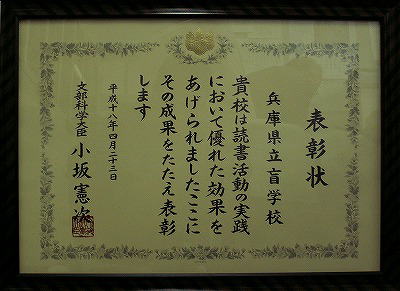 表彰状
兵庫県立盲学校
貴校は読書活動の実践
において優れた効果を
あげられましたここに
その成果をたたえ表彰
します
平成十八年四月二十三日
文部科学大臣 小坂憲次